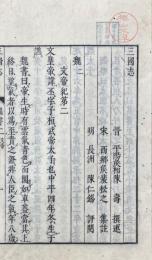 三國志
晉 平陽侯相陳 壽 撰述
宋 西鄉侯裴松之 集註
明 長洲 陳仁錫 評閱
魏二
文帝紀第二
文皇帝諱丕字子桓武帝太子也中平四年冬生于
譙
魏書曰帝生時有雲氣青色而圜如車蓋當其上
終日望氣者以爲至貴之證非人臣之氣年八歲